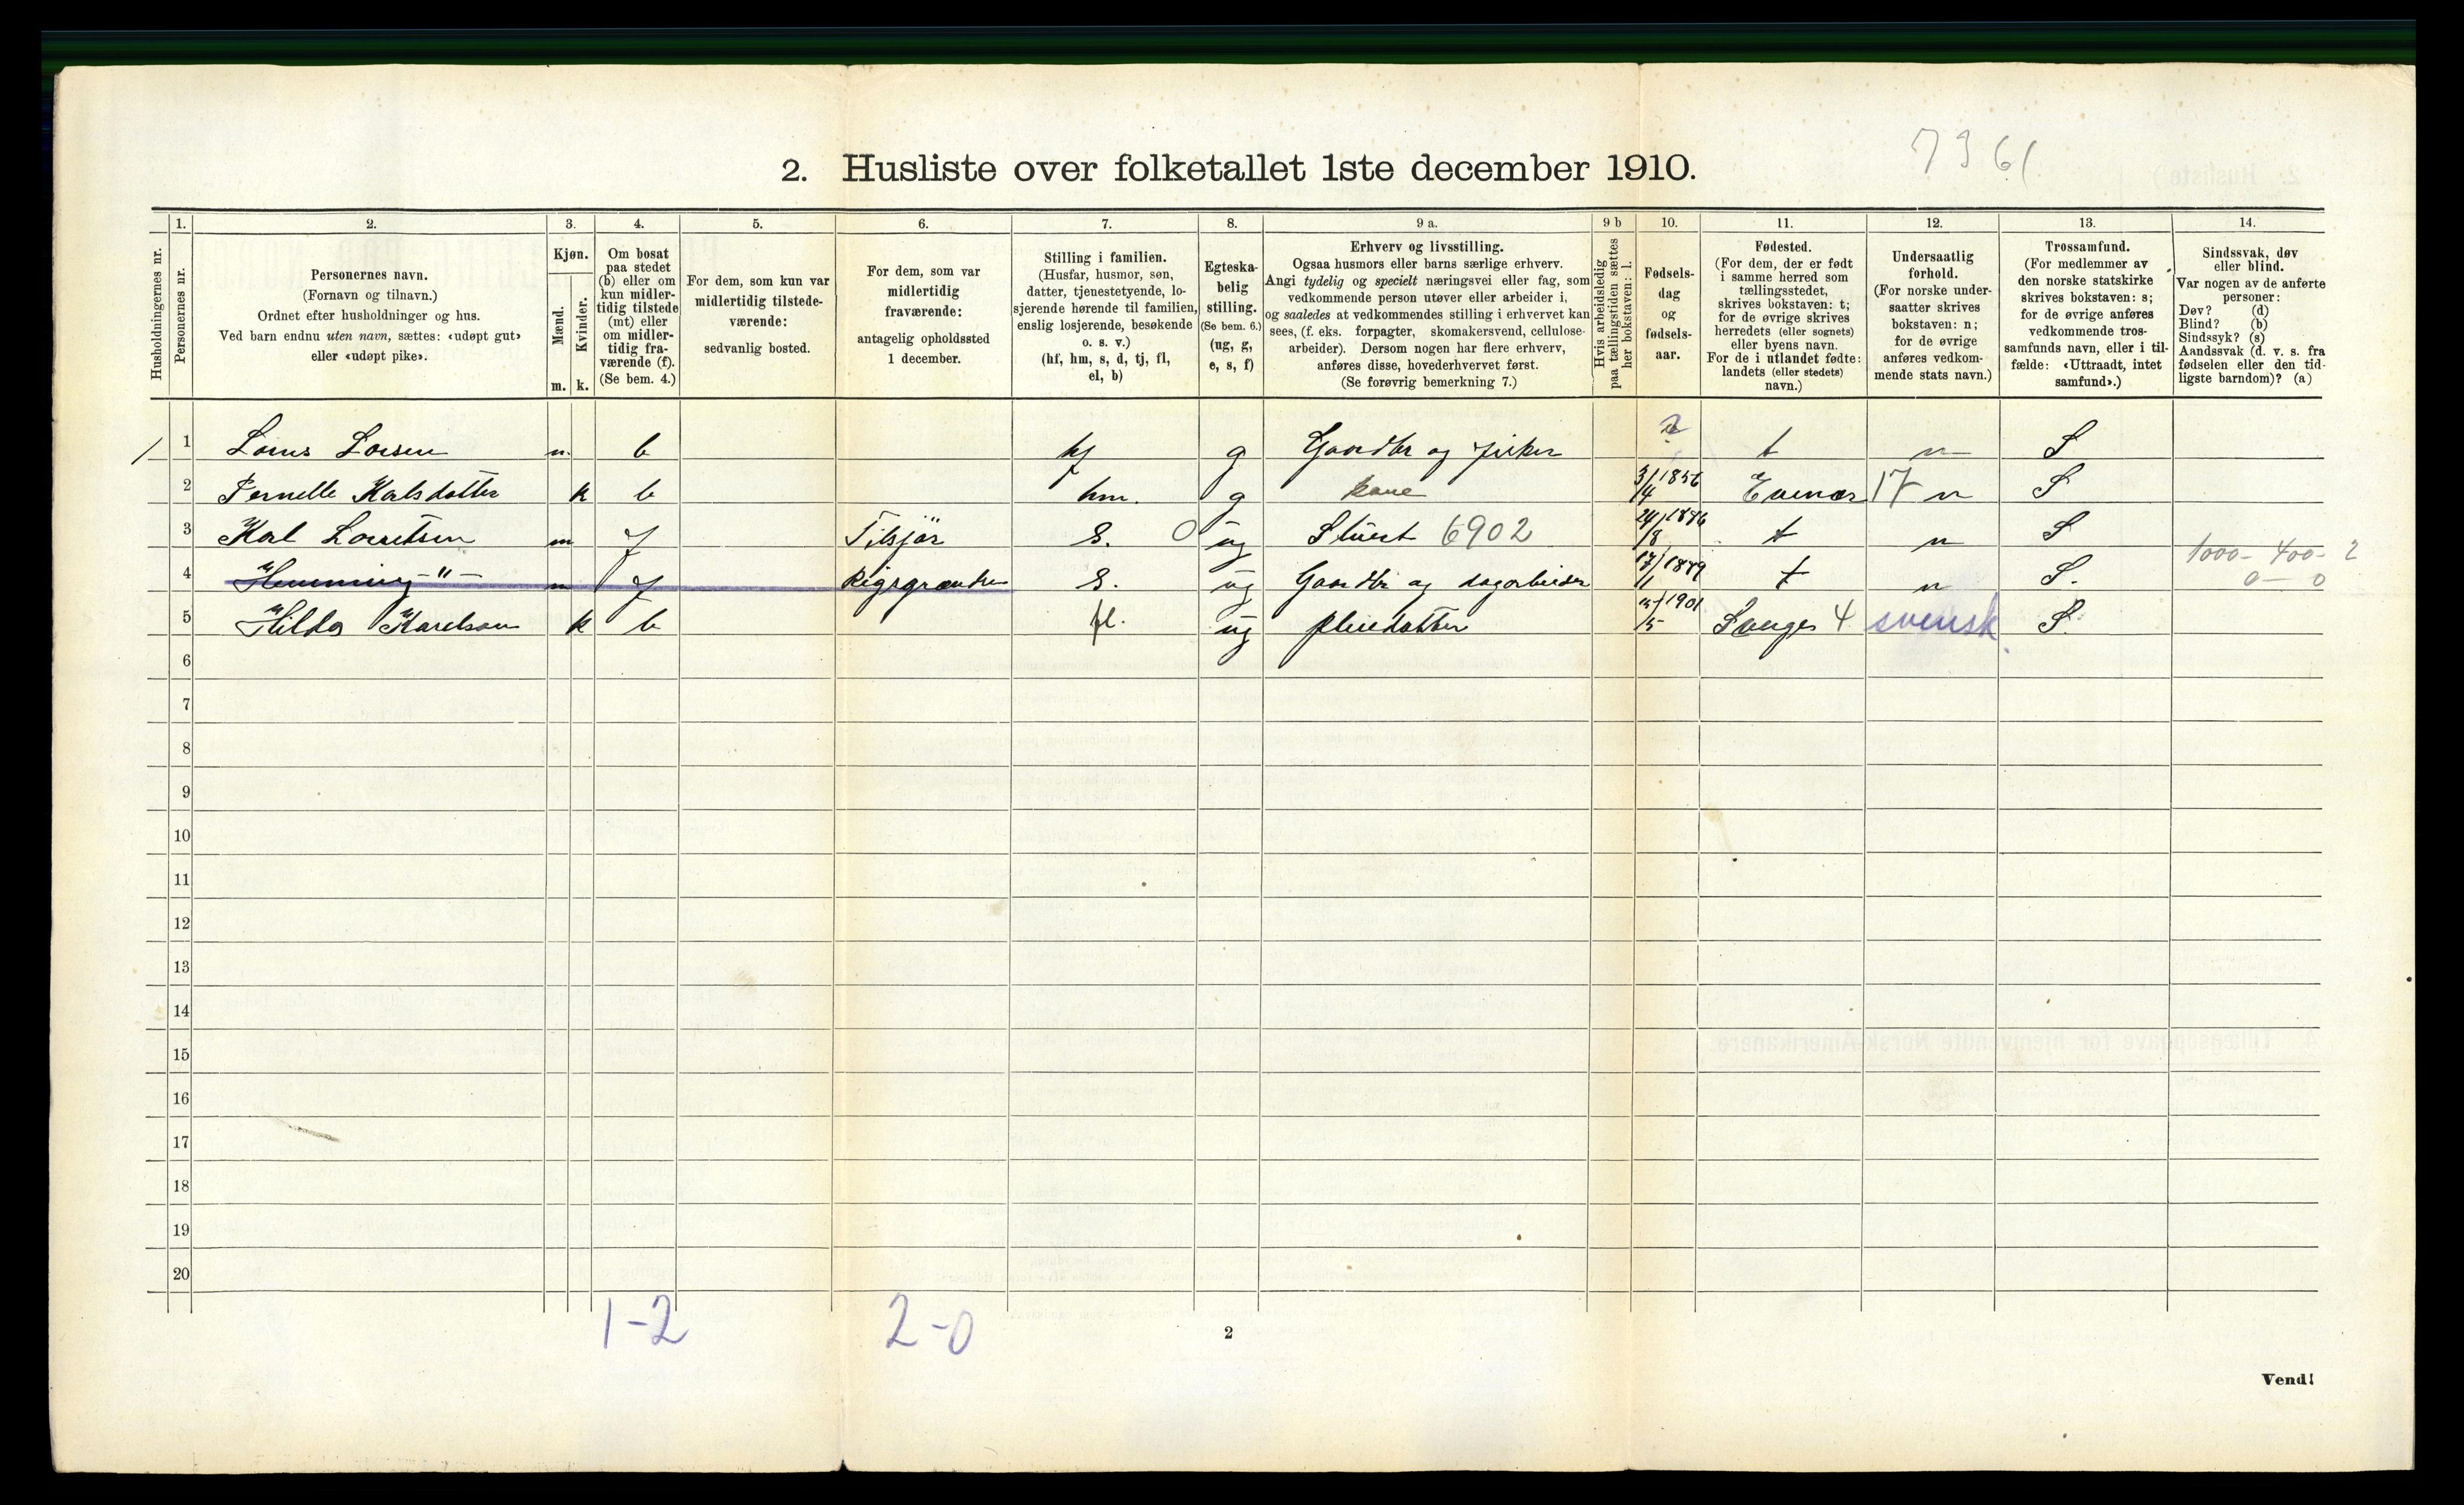 7361
2. Husliste over folketallet 1ste december 1910.
Husholdningernes nr.
1.
Personernes nr.
2.
Personernes navn.
(Fornavn og tilnavn.)
Ordnet efter husholdninger og hus.
Ved barn endnu uten navn, sættes: «udøpt gut»
eller «udøpt pike».
3.
Kjøn.
Mænd.
Kvinder.
m. k.
4.
Om bosat
paa stedet
(b) eller om
kun midler-
tidig tilstede
(mt) eller
om midler-
tidig fra-
værende (f).
(Se bem. 4.)
5.
For dem, som kun var
midlertidig tilstede-
værende:
sedvanlig bosted.
6.
For dem, som var
midlertidig
fraværende:
antagelig opholdssted
1 december.
7.
Stilling i familien.
(Husfar, husmor, søn,
datter, tjenestetyende, lo-
sjerende hørende til familien,
enslig losjerende, besøkende
o. s. v.)
(hf, hm, s, d, tj, fl,
el, b)
8.
Egteska-
belig
stilling.
(Se bem. 6.)
(ug, g,
e, s, f)
9 a.
Erhverv og livsstilling.
Ogsaa husmors eller barns særlige erhverv.
Angi tydelig og specielt næringsvei eller fag, som
vedkommende person utøver eller arbeider i,
og saaledes at vedkommendes stilling i erhvervet kan
sees, (f. eks. forpagter, skomakersvend, cellulose-
arbeider). Dersom nogen har flere erhverv,
anføres disse, hovederhvervet først.
(Se forøvrig bemerkning 7.)
9 b
Hvis arbeidsledig
paa tællingstiden sættes
her bokstaven: l.
10.
Fødsels-
dag
og
fødsels-
aar.
11.
Fødested.
(For dem, der er født
i samme herred som
tællingsstedet,
skrives bokstaven: t;
for de øvrige skrives
herredets (eller sognets)
eller byens navn.
For de i utlandet fødte:
landets (eller stedets)
navn.)
12.
Undersaatlig
forhold.
(For norske under-
saatter skrives
bokstaven: n;
for de øvrige
anføres vedkom-
mende stats navn.)
13.
Trossamfund.
(For medlemmer av
den norske statskirke
skrives bokstaven: s;
for de øvrige anføres
vedkommende tros-
samfunds navn, eller i til-
fælde: «Uttraadt, intet
samfund».)
14.
Sindssvak, døv
eller blind.
Var nogen av de anførte
personer:
Døv? (d)
Blind? (b)
Sindssyk? (s)
Aandssvak (d. v. s. fra
fødselen eller den tid-
ligste barndom)? (a)
1 Larsen m b hf g Gaardbr og fisker t n S
2 Pernelle Karlsdatter k b hm. g kone 3/4 1856 Evenæs 17 n S
3 Karl m f S. 0 ug 6902 24/8 1886 t n S
4 Hemming -"- m f Rigsgrændsen S. ug Gaardbr og dagarbeider 17/1 1889 t n S. 1000- 400- 2
0 — 0
5 Hilda Karelsen k b fl. ug pleiedatter /5 1901 4 svensk S.
6
7
8
9
10
11
12
13
14
15
16
17
18
19
20
1-2 2-0
2
Vend!